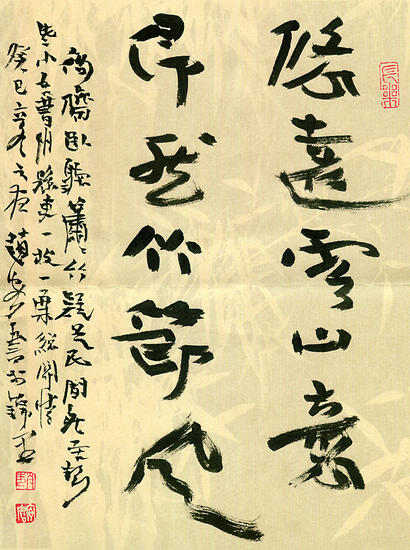 悠遠雲山意
昂然竹節风
衙齋臥聽蕭〻竹疑是民間疾苦聲
些小吾曹州縣吏一枝一葉總關情
癸巳 冬之夜趙